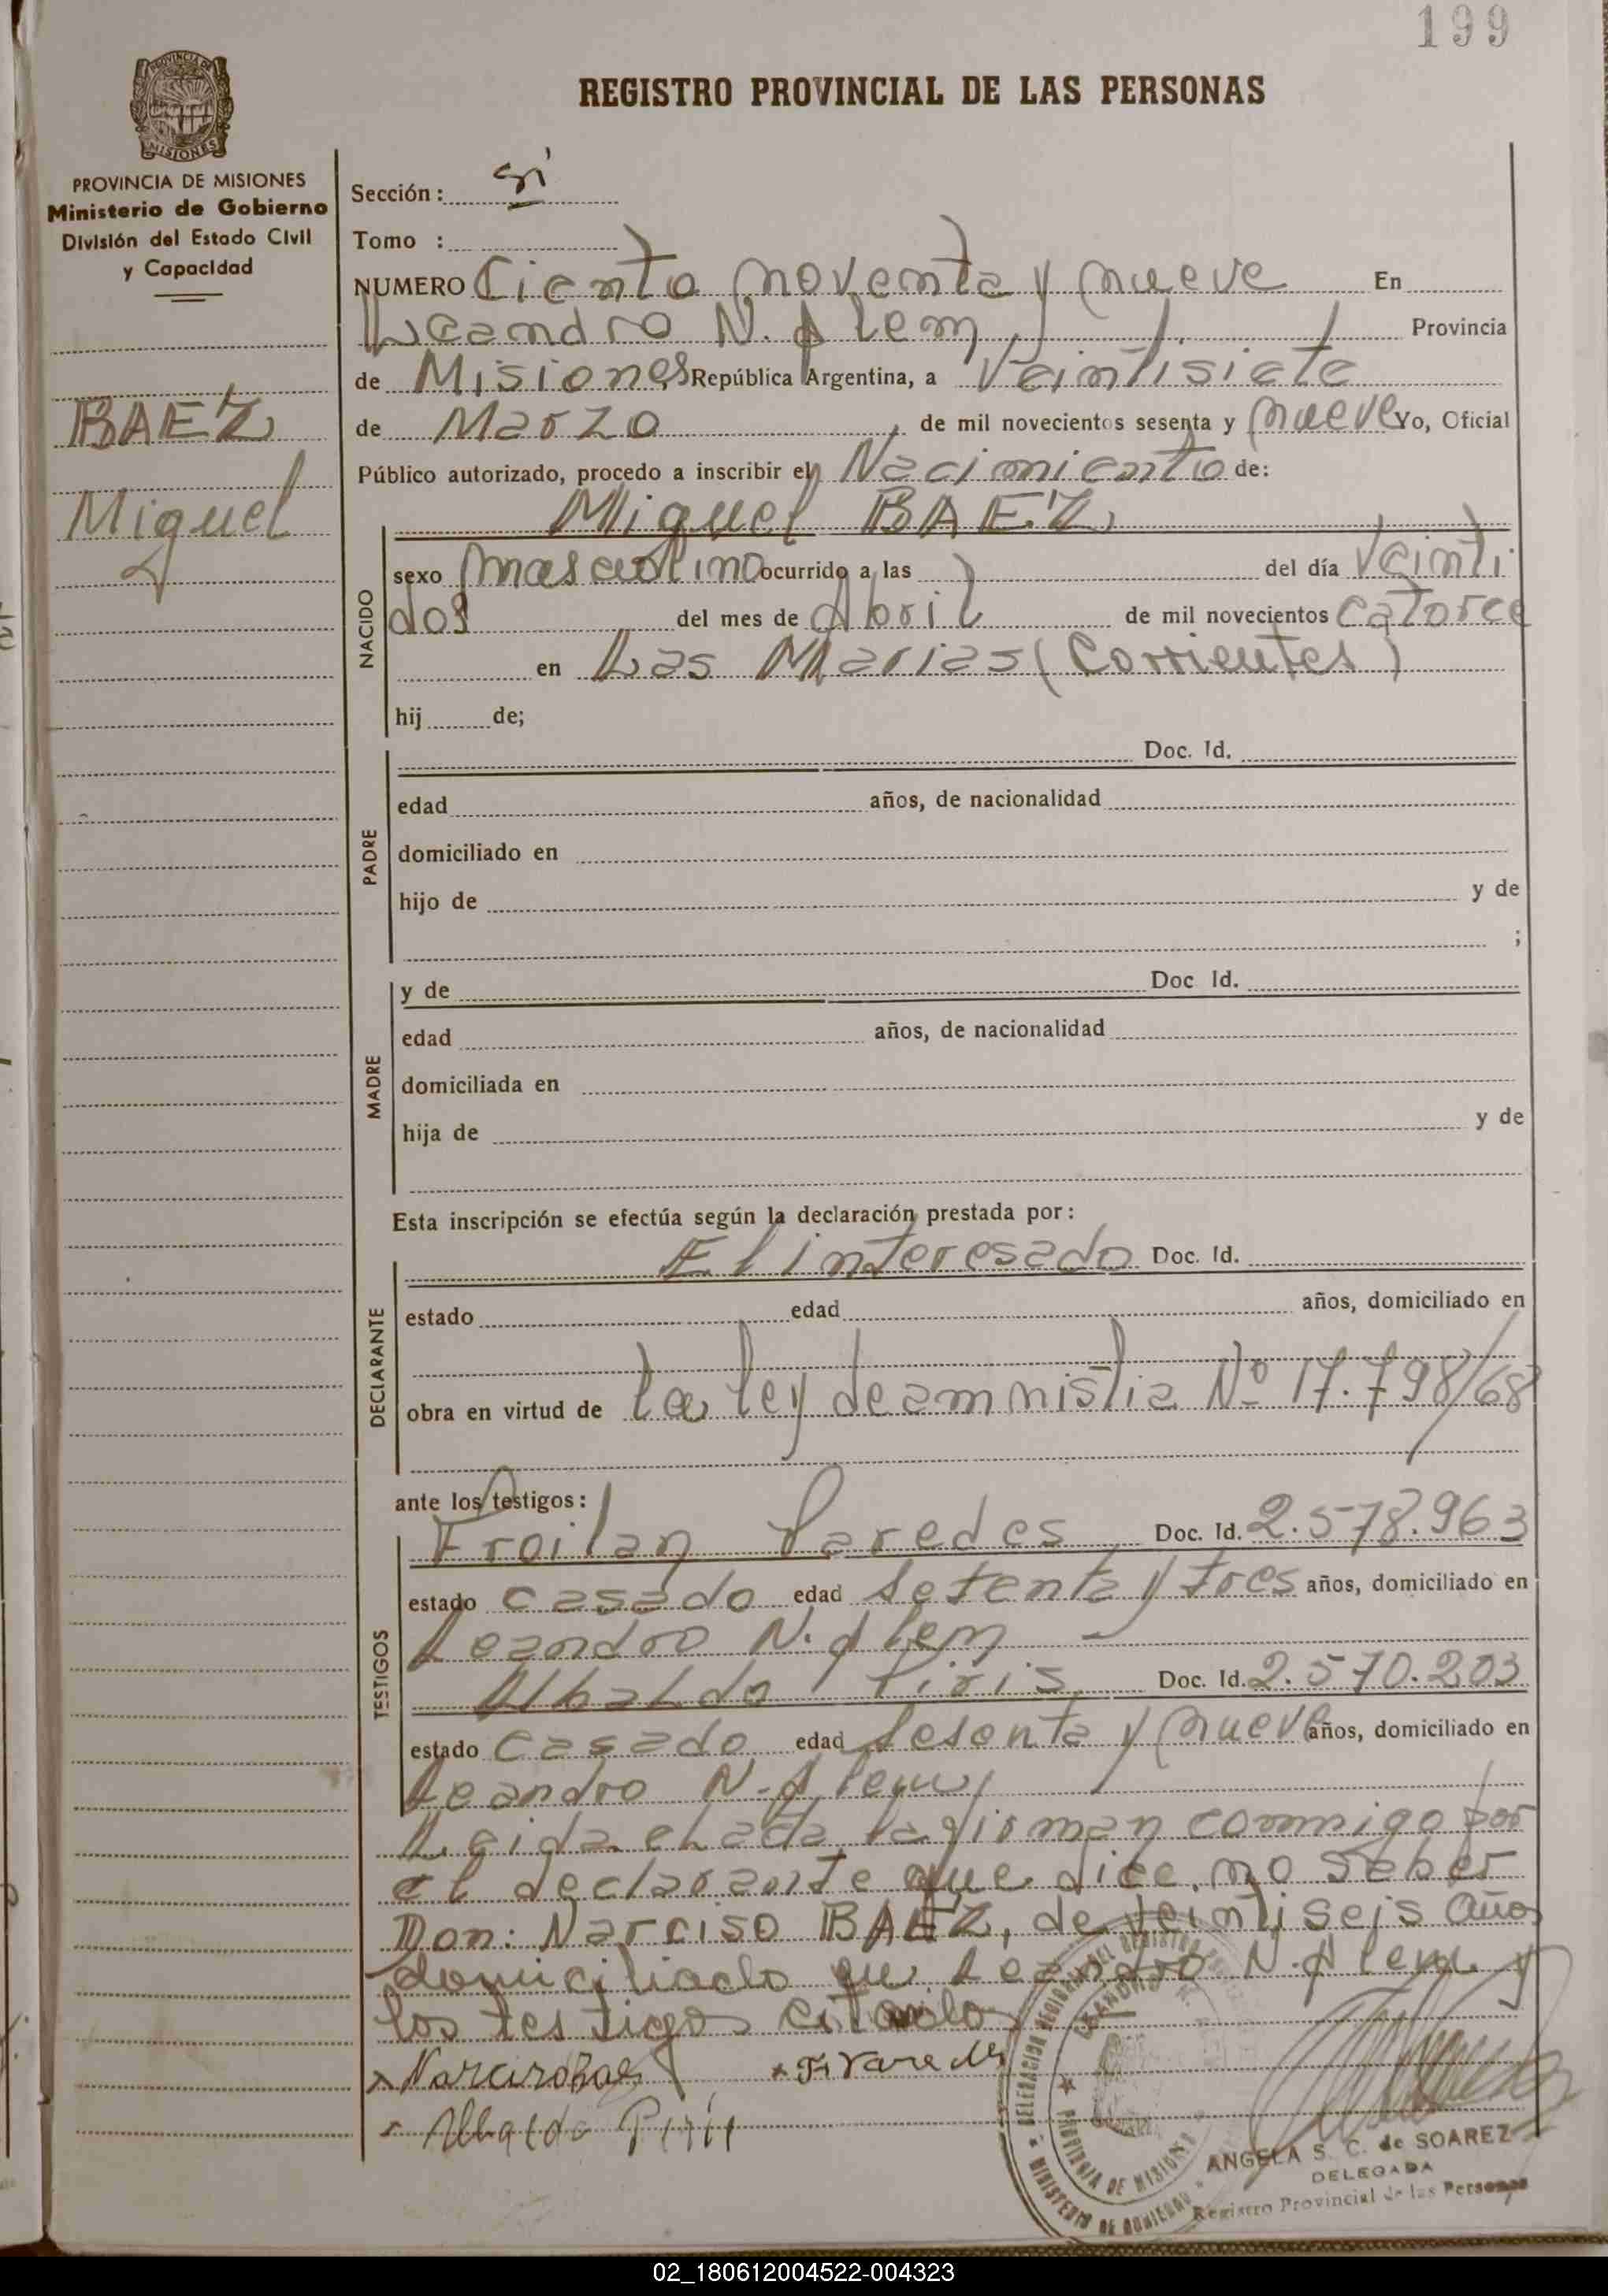 199
REGISTRO PROVINCIAL DE LAS PERSONAS
PROVINCIA DE MISIONES
Ministerio de Gobierno
División del Estado Civil
y Capacidad
BAEZ
Miguel
Sección:
Tomo :
NUMERO Ciento noventa y nueve En
Leandro N. Alem, Provincia
de Misiones República Argentina, a Veintisiete
de Marzo de mil novecientos sesenta y nueve Yo, Oficial
Público autorizado, procedo a inscribir el Nacimiento de:
Miguel BAEZ,
NACIDO
sexo masculino ocurrido a las del día Veinti
dos del mes de Abril de mil novecientos catorce
en Las Marias (Corrientes)
hij de;
PADRE
Doc. Id.
edad años, de nacionalidad
domiciliado en
hijo de y de
;
MADRE
y de Doc Id.
edad años, de nacionalidad
domiciliada en
hija de y de
Esta inscripción se efectúa según la declaración prestada por:
DECLARANTE
El interesado Doc. Id.
estado edad años, domiciliado en
obra en virtud de la ley de amnistia Nº 17.798/68
ante los testigos:
TESTIGOS
Froilan Paredes Doc. Id. 2.578.963
estado casado edad setenta y tres años, domiciliado en
Leandro N. Alem
Ubaldo Piris Doc. Id. 2.570.203
estado casado edad sesenta y nueve años, domiciliado en
Leandro N. Alem,
Leida el acta la firman conmigo por
el declarante que dice no saber
Don: Narciso BAEZ, de veintiseis años
domiciliado en Leandro N. Alem y
los testigos citado
x Narciso Bae
x F. Paredes
Ubaldo Piris
DELEGACION REGIONAL DEL REGISTRO
LEANDRO N.
PROVINCIA DE MISIONES
MINISTERIO DE GOBIERNO
ANGELA S. C. de SOAREZ
DELEGADA
Registro Provincial de las Personas
02_180612004522-004323